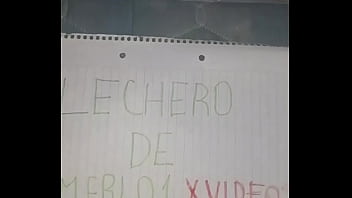 LECHERO
DE
MERLO1 XVIDEO